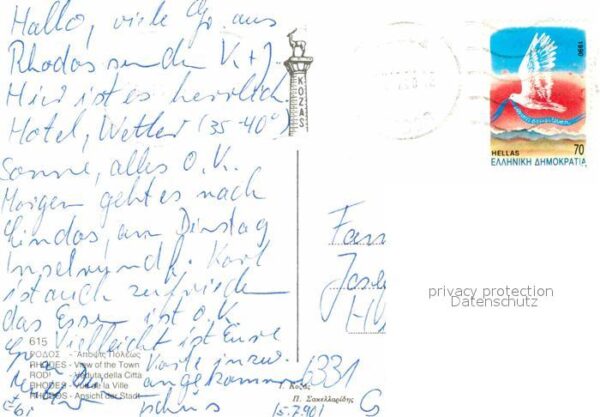 Hallo, viele Gr. aus
Rhodos senden K. + J.
Hier ist es herrlich
Hotel, Wetter (35-40°)
Sonne, alles O.K.
Morgen geht es nach
Lindos, am Dienstag
Inselrundf. Karl
ist auch zufrieden
das Essen ist O.K.
Vielleicht ist Eure
Karte inzw.
angekommen
15.7.90
KOZAS
1990
HELLAS 70
ΕΛΛΗΝΙΚΗ ΔΗΜΟΚΡΑΤΙΑ
Fam
Jose
6331
privacy protection
Datenschutz
615
ΡΟΔΟΣ - Άποψις Πόλεως
RHODES - View of the Town
RODI - Veduta della Città
RHODES - Vue de la Ville
RHODOS - Ansicht der Stadt
Κοζάς
Π. Σακελλαρίδης